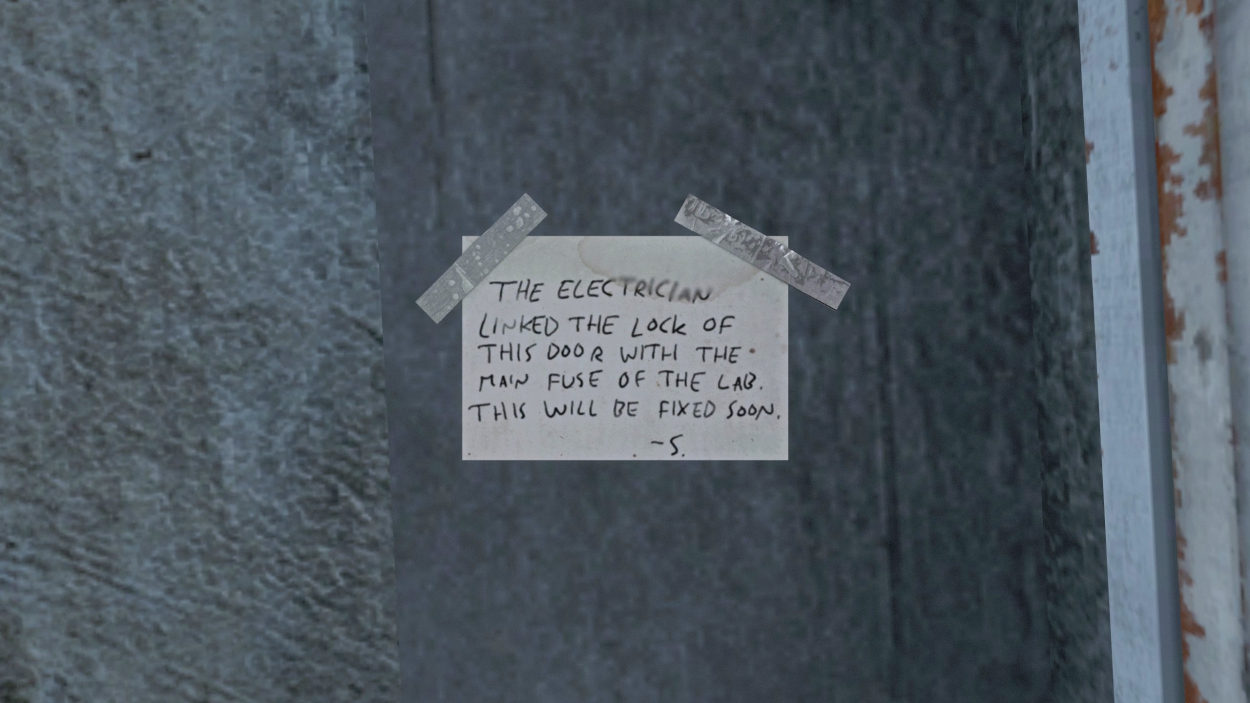 THE ELECTRICIAN
LINKED THE LOCK OF
THIS DOOR WITH THE
MAIN FUSE OF THE LAB.
THIS WILL BE FIXED SOON.
-S.